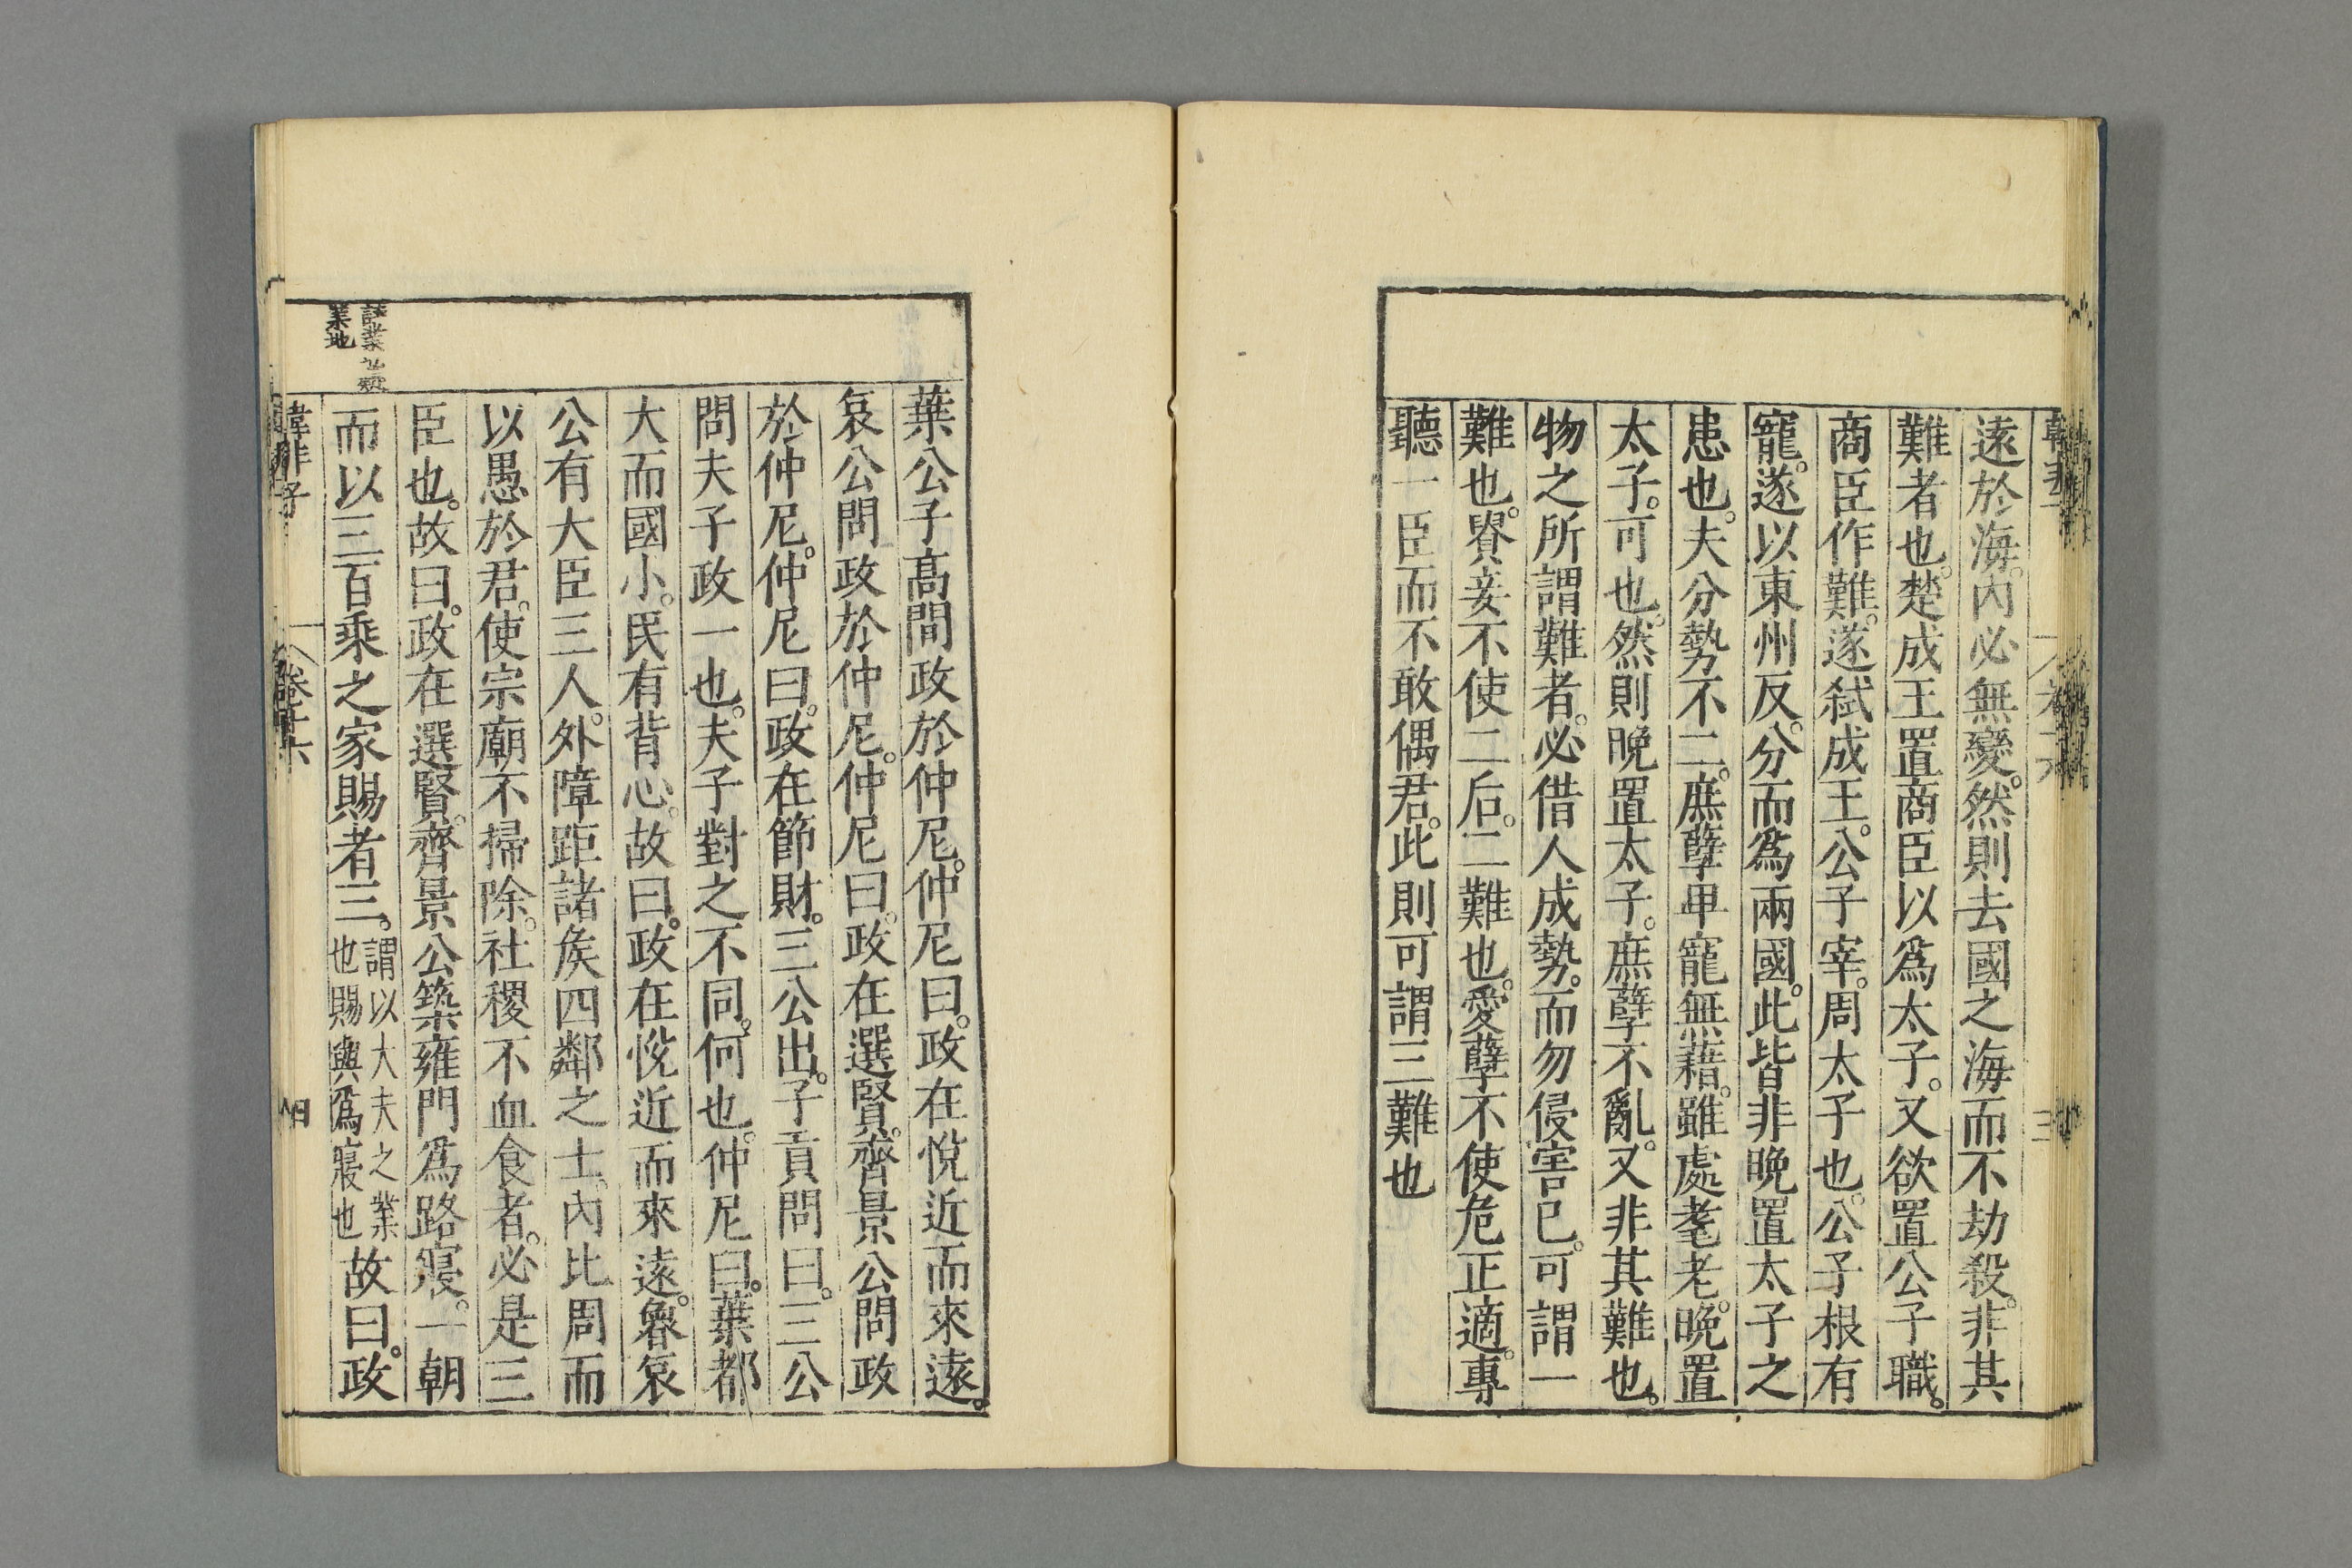 遠於海。內必無變。然則去國之海而不劫殺。非其
難者也。楚成王置商臣以爲太子。又欲置公子職。
商臣作難。遂弑成王。公子宰。周太子也。公子根有
寵。遂以東州反。分而爲兩國。此皆非晚置太子之
患也。夫分勢不二。庶孽卑寵無藉。雖處耄老。晚置
太子。可也。然則晚置太子。庶孽不亂。又非其難也。
物之所謂難者。必借人成勢。而勿侵害己。可謂一
難也。貴妾不使二后。二難也。愛孽不使危正適。專
聽一臣而不敢偶君。此則可謂三難也
葉公子高問政於仲尼。仲尼曰。政在悅近而來遠。
哀公問政於仲尼。仲尼曰。政在選賢。齊景公問政
於仲尼。仲尼曰。政在節財。三公出。子貢問曰。三公
問夫子政一也。夫子對之不同。何也。仲尼曰。葉都
大而國小。民有背心。故曰。政在悅近而來遠。魯哀
公有大臣三人。外障距諸矦四鄰之士。內比周而
以愚於君。使宗廟不掃除。社稷不血食者。必是三
臣也。故曰。政在選賢。齊景公築雍門爲路寢。一朝
而以三百乘之家賜者三。謂以大夫之業也賜與爲寢也故曰。政
業地
韓非子 卷十六 四